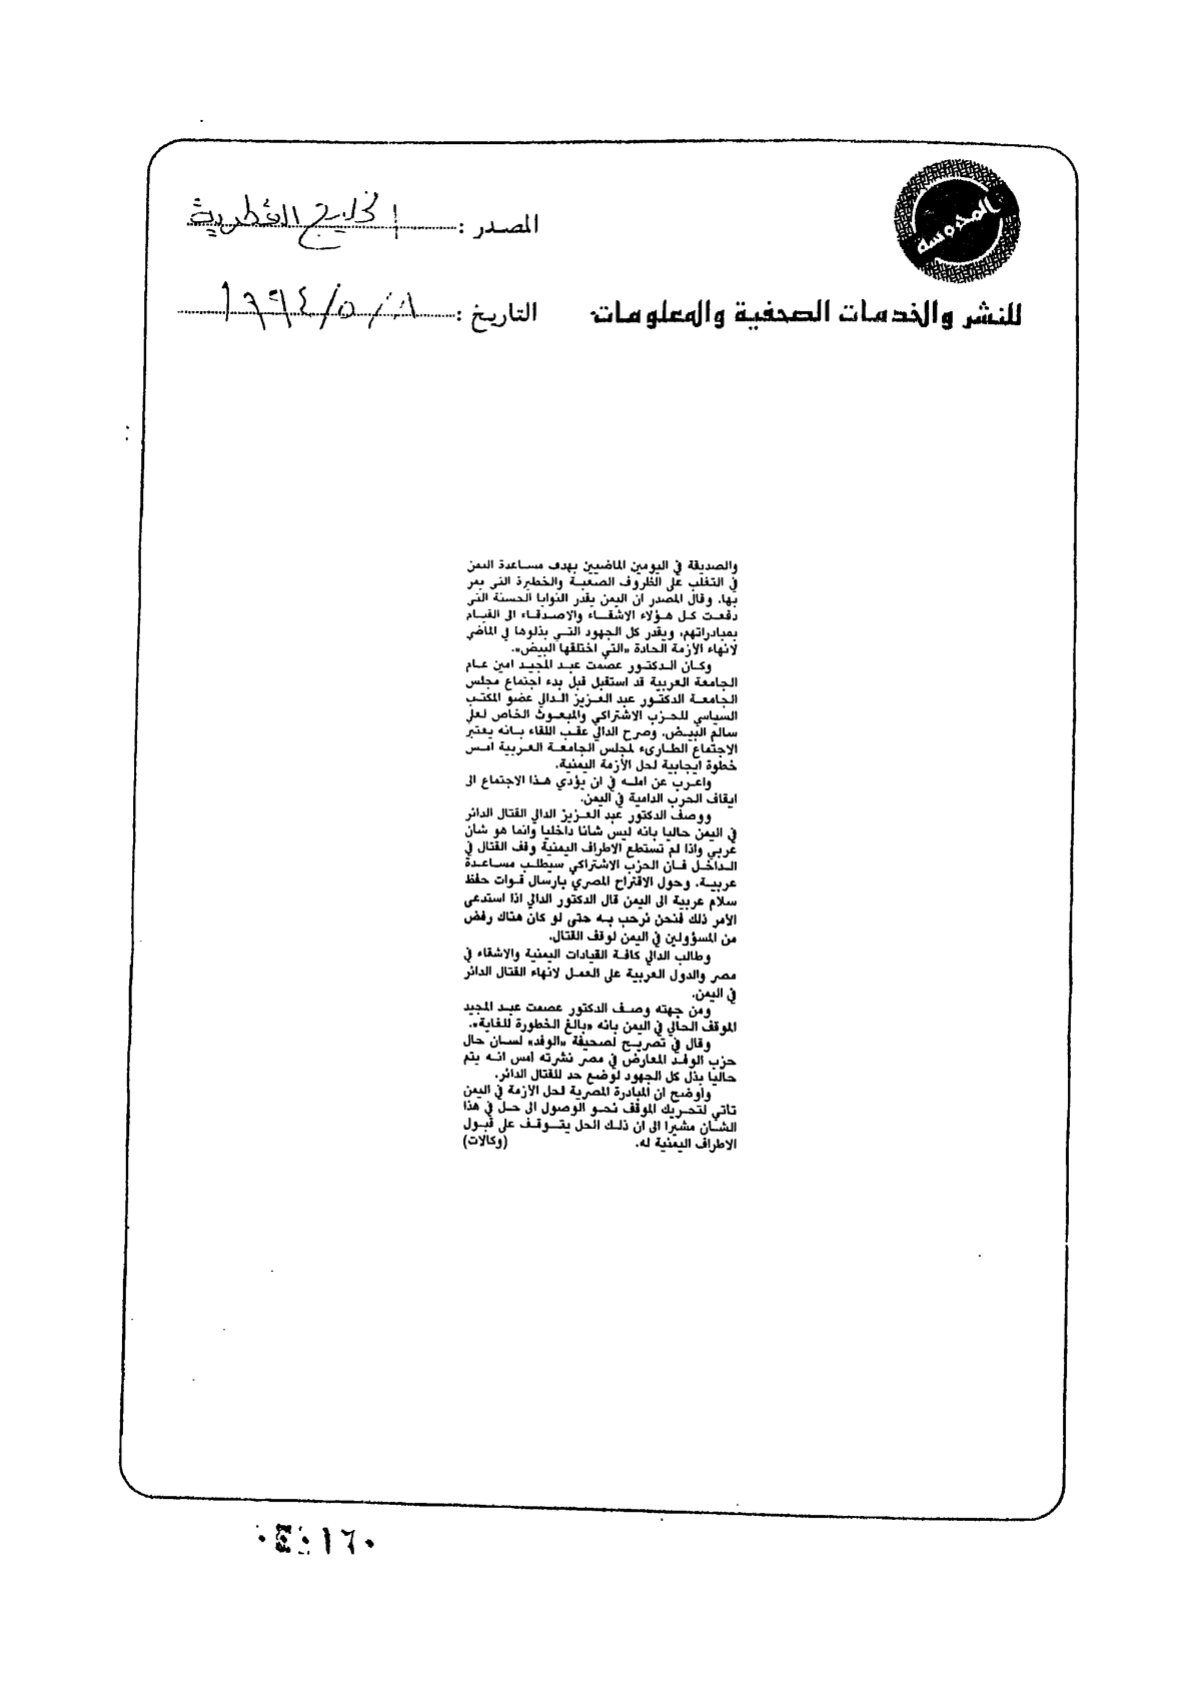 المحروسة
للنشر والخدمات الصحفية والمعلومات
المصدر : الخليج القطرية
التاريخ : ١٩٩٤/٥/٨
والصديقة في اليومين الماضيين بهدف مساعدة اليمن
في التغلب على الظروف الصعبة والخطيرة التي يمر
بها. وقال المصدر ان اليمن يقدر النوايا الحسنة التي
دفعت كل هؤلاء الاشقاء والاصدقاء الى القيام
بمبادراتهم، ويقدر كل الجهود التي بذلوها في الماضي
لانهاء الأزمة الحادة «التي اختلقها البيض».
وكان الدكتور عصمت عبد المجيد امين عام
الجامعة العربية قد استقبل قبل بدء اجتماع مجلس
الجامعة الدكتور عبد العزيز الدالي عضو المكتب
السياسي للحزب الاشتراكي والمبعوث الخاص لعلي
سالم البيض. وصرح الدالي عقب اللقاء بانه يعتبر
الاجتماع الطارىء لمجلس الجامعة العربية امس
خطوة ايجابية لحل الأزمة اليمنية.
واعرب عن امله في ان يؤدي هذا الاجتماع الى
ايقاف الحرب الدامية في اليمن.
ووصف الدكتور عبد العزيز الدالي القتال الدائر
في اليمن حاليا بانه ليس شانا داخليا وانما هو شان
عربي واذا لم تستطع الاطراف اليمنية وقف القتال في
الداخل فان الحزب الاشتراكي سيطلب مساعدة
عربية. وحول الاقتراح المصري بارسال قوات حفظ
سلام عربية الى اليمن قال الدكتور الدالي اذا استدعى
الأمر ذلك فنحن نرحب به حتى لو كان هناك رفض
من المسؤولين في اليمن لوقف القتال.
وطالب الدالي كافة القيادات اليمنية والاشقاء في
مصر والدول العربية على العمل لانهاء القتال الدائر
في اليمن.
ومن جهته وصف الدكتور عصمت عبد المجيد
الموقف الحالي في اليمن بانه «بالغ الخطورة للغاية».
وقال في تصريح لصحيفة «الوفد» لسان حال
حزب الوفد المعارض في مصر نشرته امس انه يتم
حاليا بذل كل الجهود لوضع حد للقتال الدائر.
وأوضح ان المبادرة المصرية لحل الأزمة في اليمن
تاتي لتحريك الموقف نحو الوصول الى حل في هذا
الشان مشيرا الى ان ذلك الحل يتوقف على قبول
الاطراف اليمنية له. (وكالات)